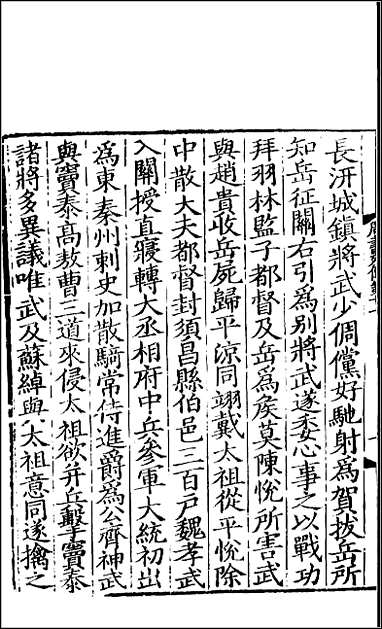 長汧城鎮將武少倜儻好馳射爲賀拔岳所
知岳征關右引爲别將武遂委心事之以戰功
拜羽林監子都督及岳爲侯莫陳悅所害武
與趙貴收岳屍歸平涼同翊戴太祖從平悅除
中散大夫都督封須昌縣伯邑三百戶魏孝武
入關授直寢轉大丞相府中兵參軍大統初出
爲東秦州刺史加散騎常侍進爵爲公齊神武
與竇泰高敖曹三道來侵太祖欲并兵擊竇泰
諸將多異議唯武及蘇綽與太祖意同遂擒之